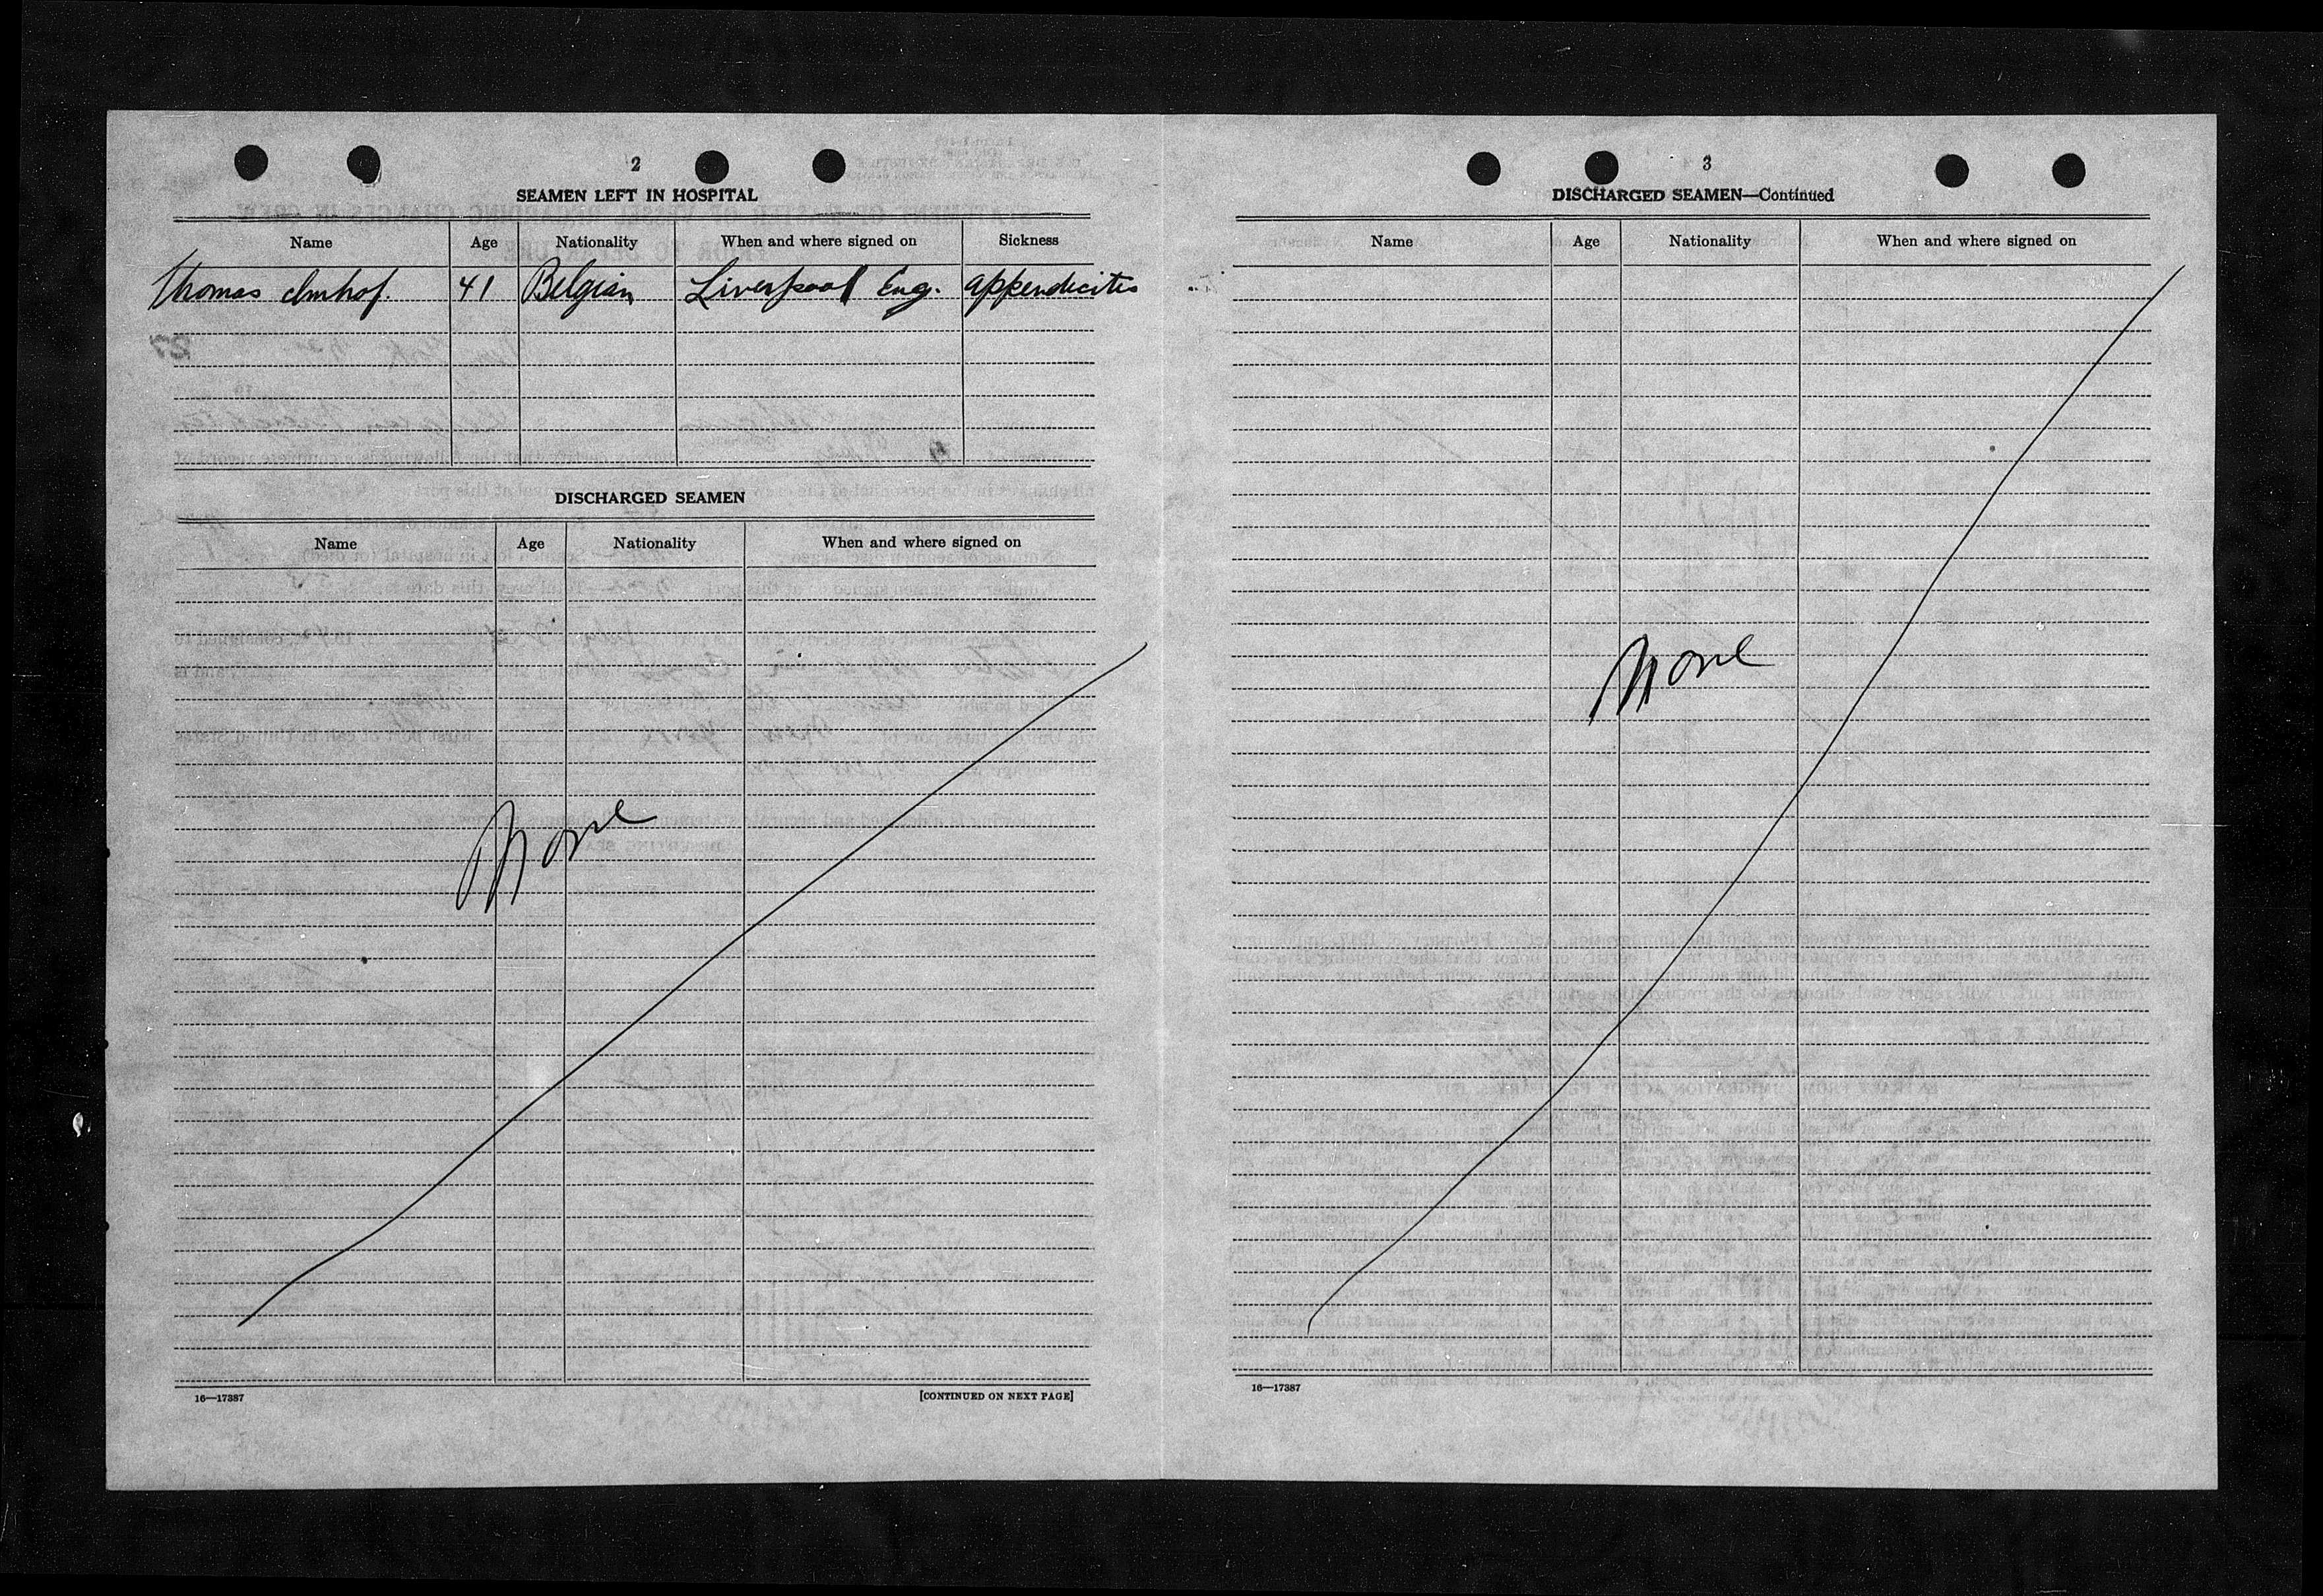 2
SEAMEN LEFT IN HOSPITAL
Name Age Nationality When and where signed on Sickness
Thomas Imhof. 41 Belgian Liverpool Eng. appendicites
DISCHARGED SEAMEN
Name Age Nationality When and where signed on
None
16—17387 [CONTINUED ON NEXT PAGE]
3
DISCHARGED SEAMEN—Continued
Name Age Nationality When and where signed on
None
16—17387